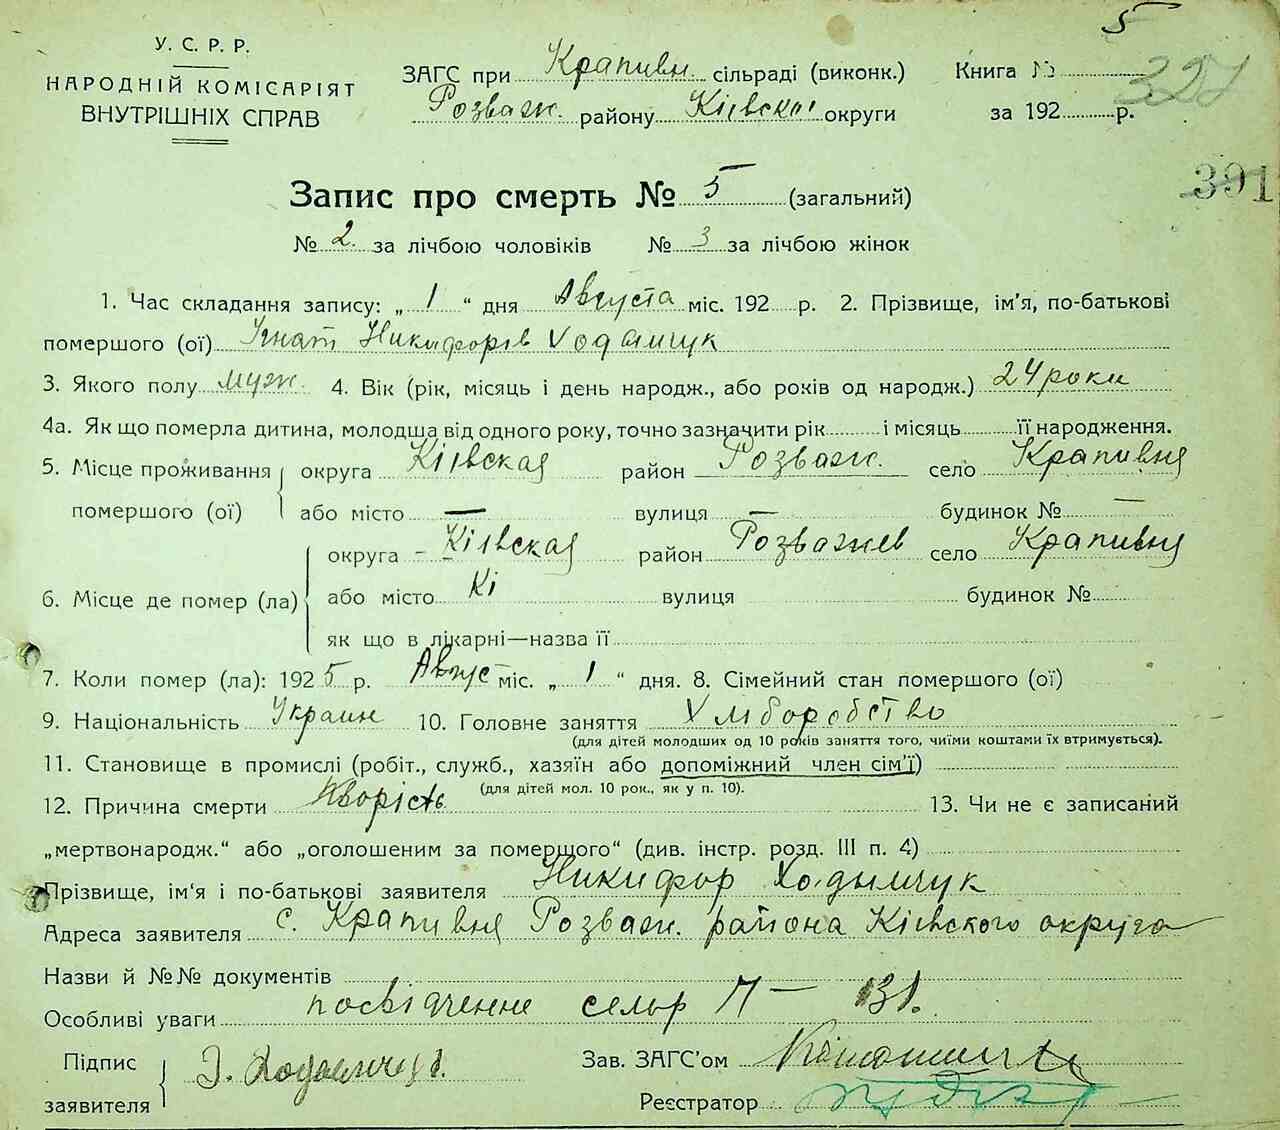 5
У. С. Р. Р.
НАРОДНІЙ КОМІСАРІЯТ
ВНУТРІШНІХ СПРАВ
ЗАГС при Крапивн. сільраді (виконк.)
Розваж. району Кіівская округи
Книга №
327
за 192 р.
391
Запис про смерть № 5 (загальний)
№ 2. за лічбою чоловіків № 3 за лічбою жінок
1. Час складання запису: „ 1 “ дня Августа міс. 192 р. 2. Прізвище, ім'я, по-батькові
помершого (ої) Игнат Никифорів Ходымчук
3. Якого полу муж. 4. Вік (рік, місяць і день народж., або років од народж.) 24 роки
4а. Як що померла дитина, молодша від одного року, точно зазначити рік і місяць її народження.
5. Місце проживання округа Кіівская район Розваж. село Крапивня
помершого (ої) або місто — вулиця — будинок № —
округа - Кіівская район Розважев село Крапивня
6. Місце де помер (ла) або місто Кі вулиця будинок №
як що в лікарні—назва її
7. Коли помер (ла): 1925 р. Авгус міс. „ 1 “ дня. 8. Сімейний стан помершого (ої)
9. Національність Украин 10. Головне заняття Хліборобство
(для дітей молодших од 10 років заняття того, чиїми коштами їх втримується).
11. Становище в промислі (робіт., служб., хазяїн або допоміжний член сім'ї)
(для дітей мол. 10 рок., як у п. 10).
12. Причина смерти Хворість 13. Чи не є записаний
„мертвонародж.“ або „оголошеним за помершого“ (див. інстр. розд. III п. 4)
Прізвище, ім'я і по-батькові заявителя Никифор Ходымчук
Адреса заявителя с. Крапивня Розваж. района Кіівского округа
Назви й №№ документів
Особливі уваги посвідчення сельр
Підпис заявителя Ходымчук
Зав. ЗАГС'ом
Реєстратор